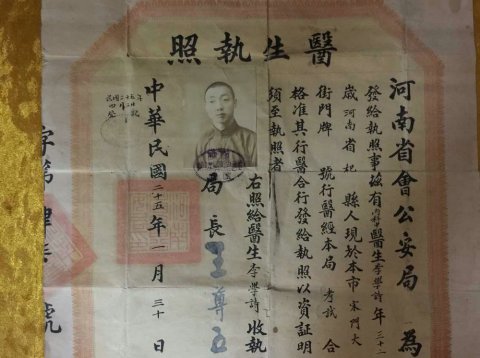 醫生執照
河南省會公安局 為
發給執照事茲有內科醫生李學詩年
歲河南省杞 縣人現於本市宋門大
街門牌 號行醫經本局考試 合
格准其行醫合行發給執照以資証明
須至執照者
右照給醫生李學詩收執
局長王尊五
中華民國二十五年一月三十日
字第肆 號